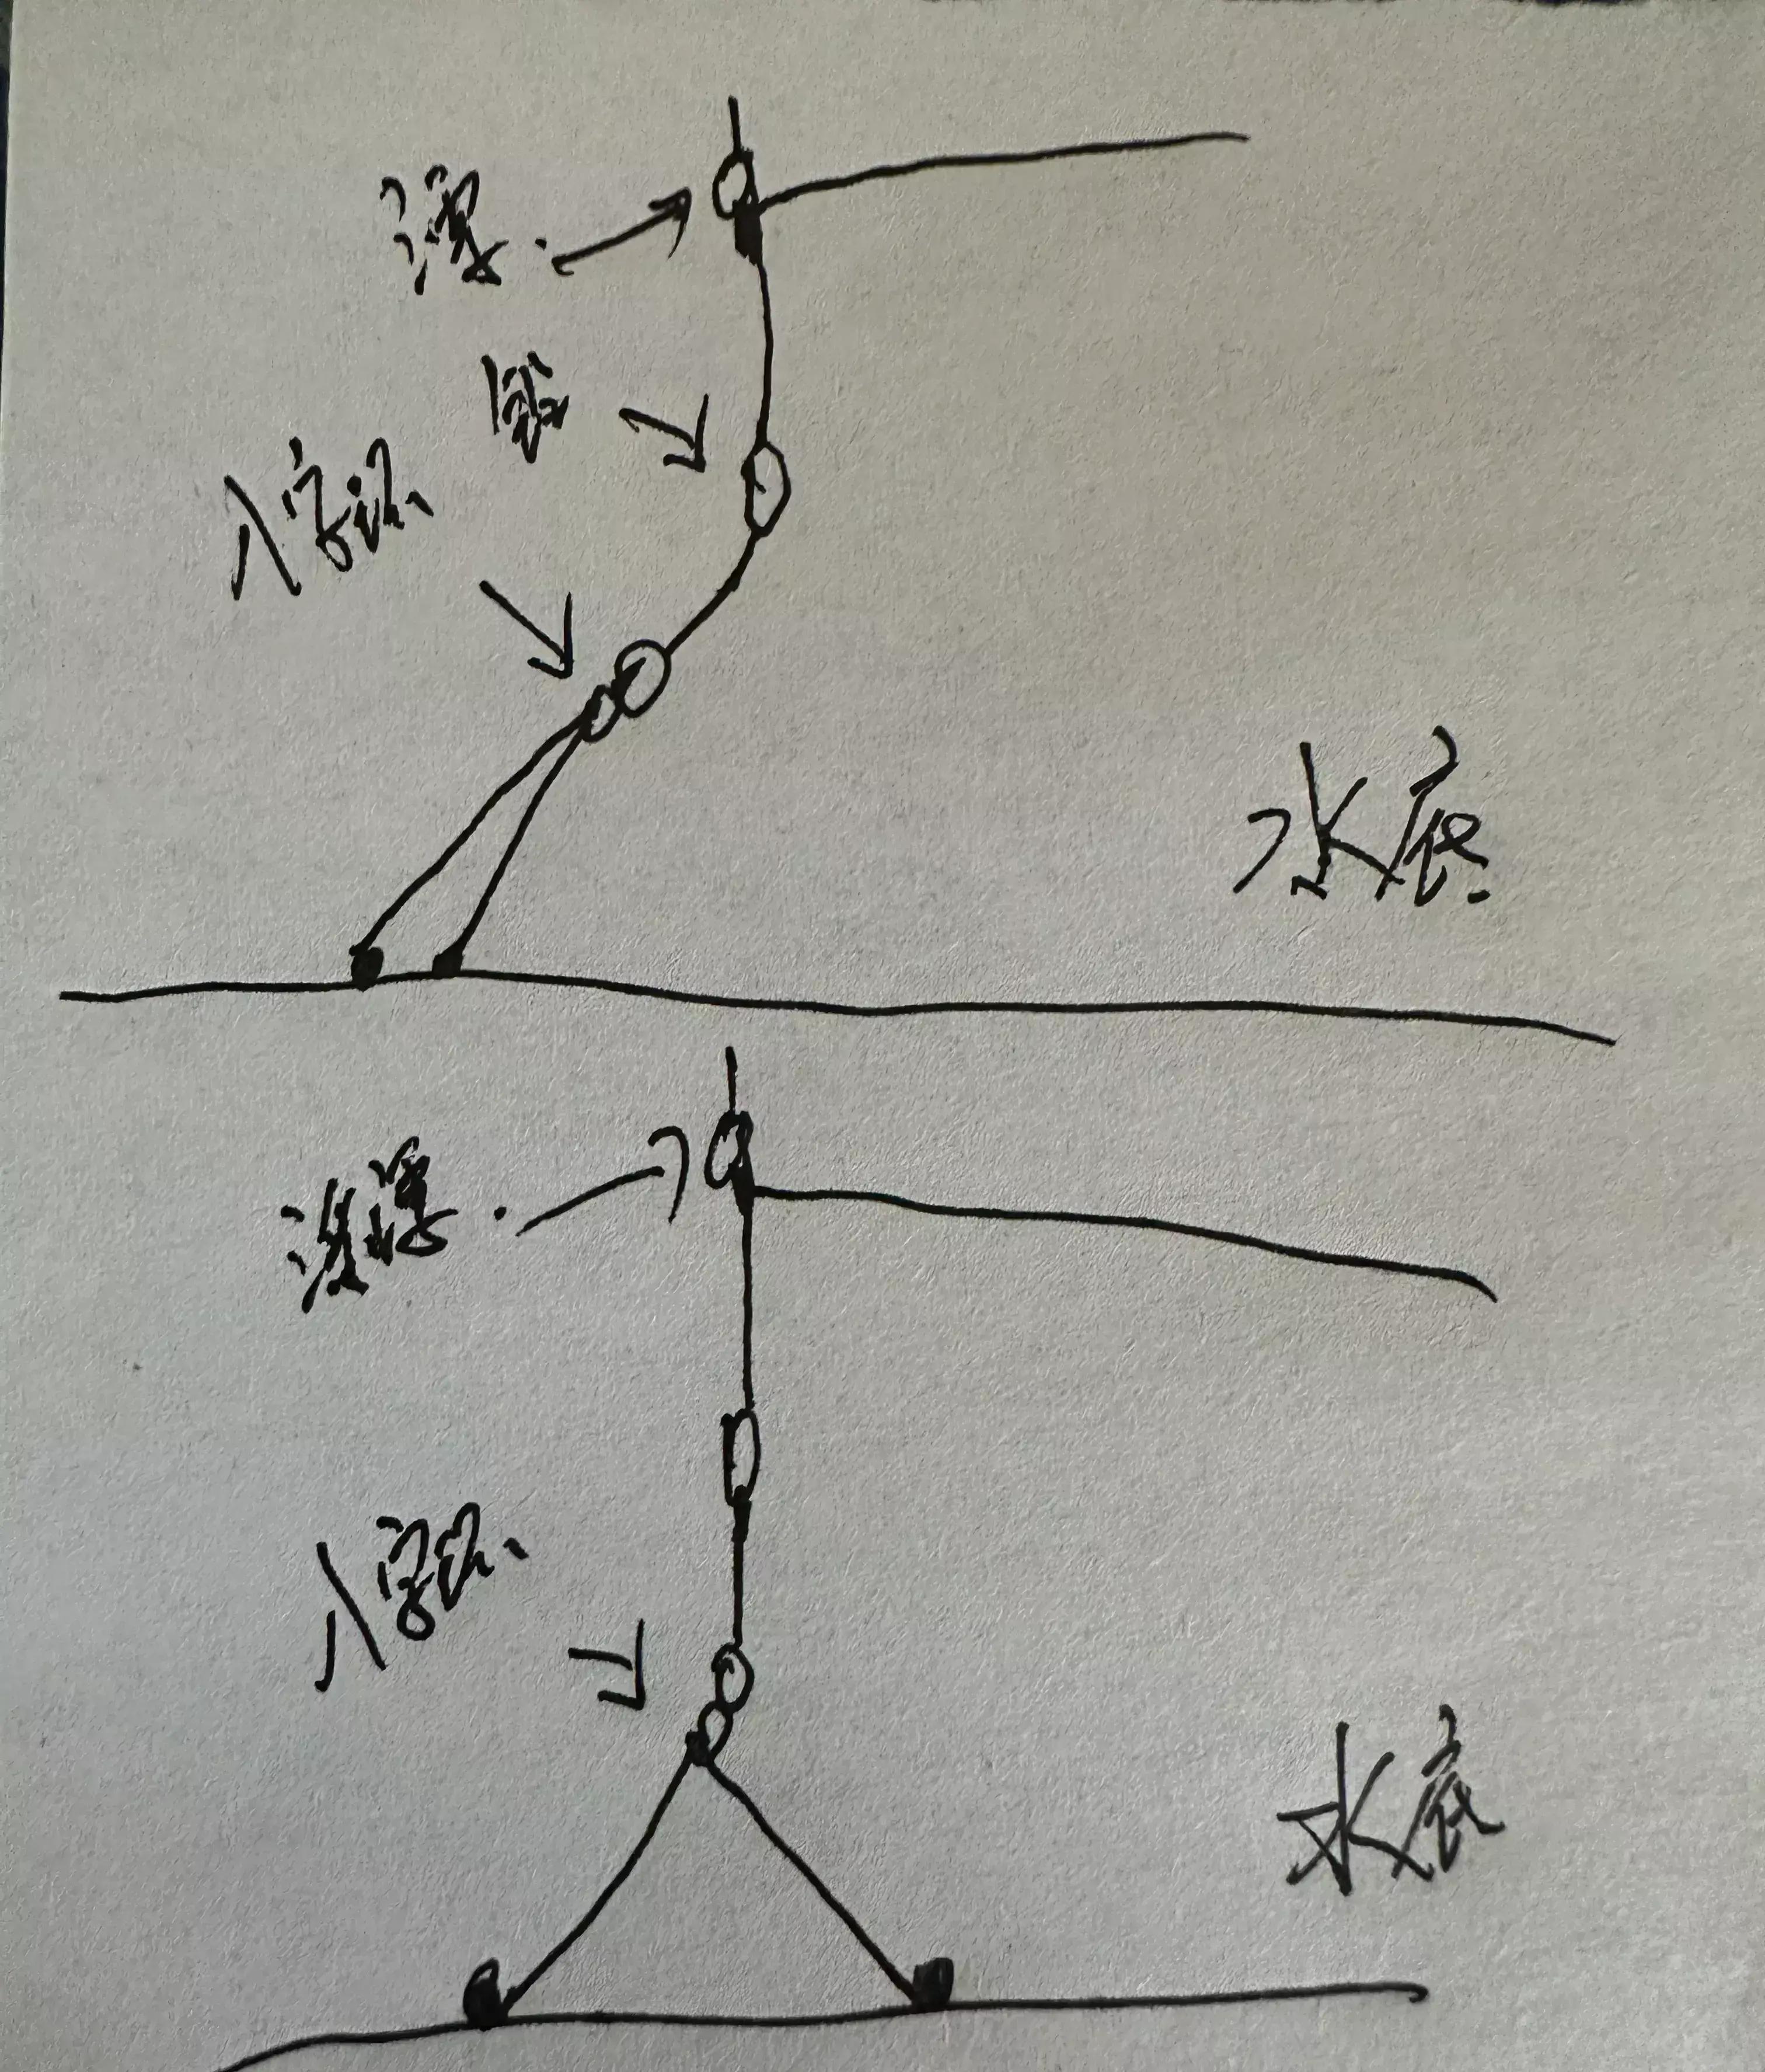 漂
铅
八字环
水底
浮漂
八字环
水底